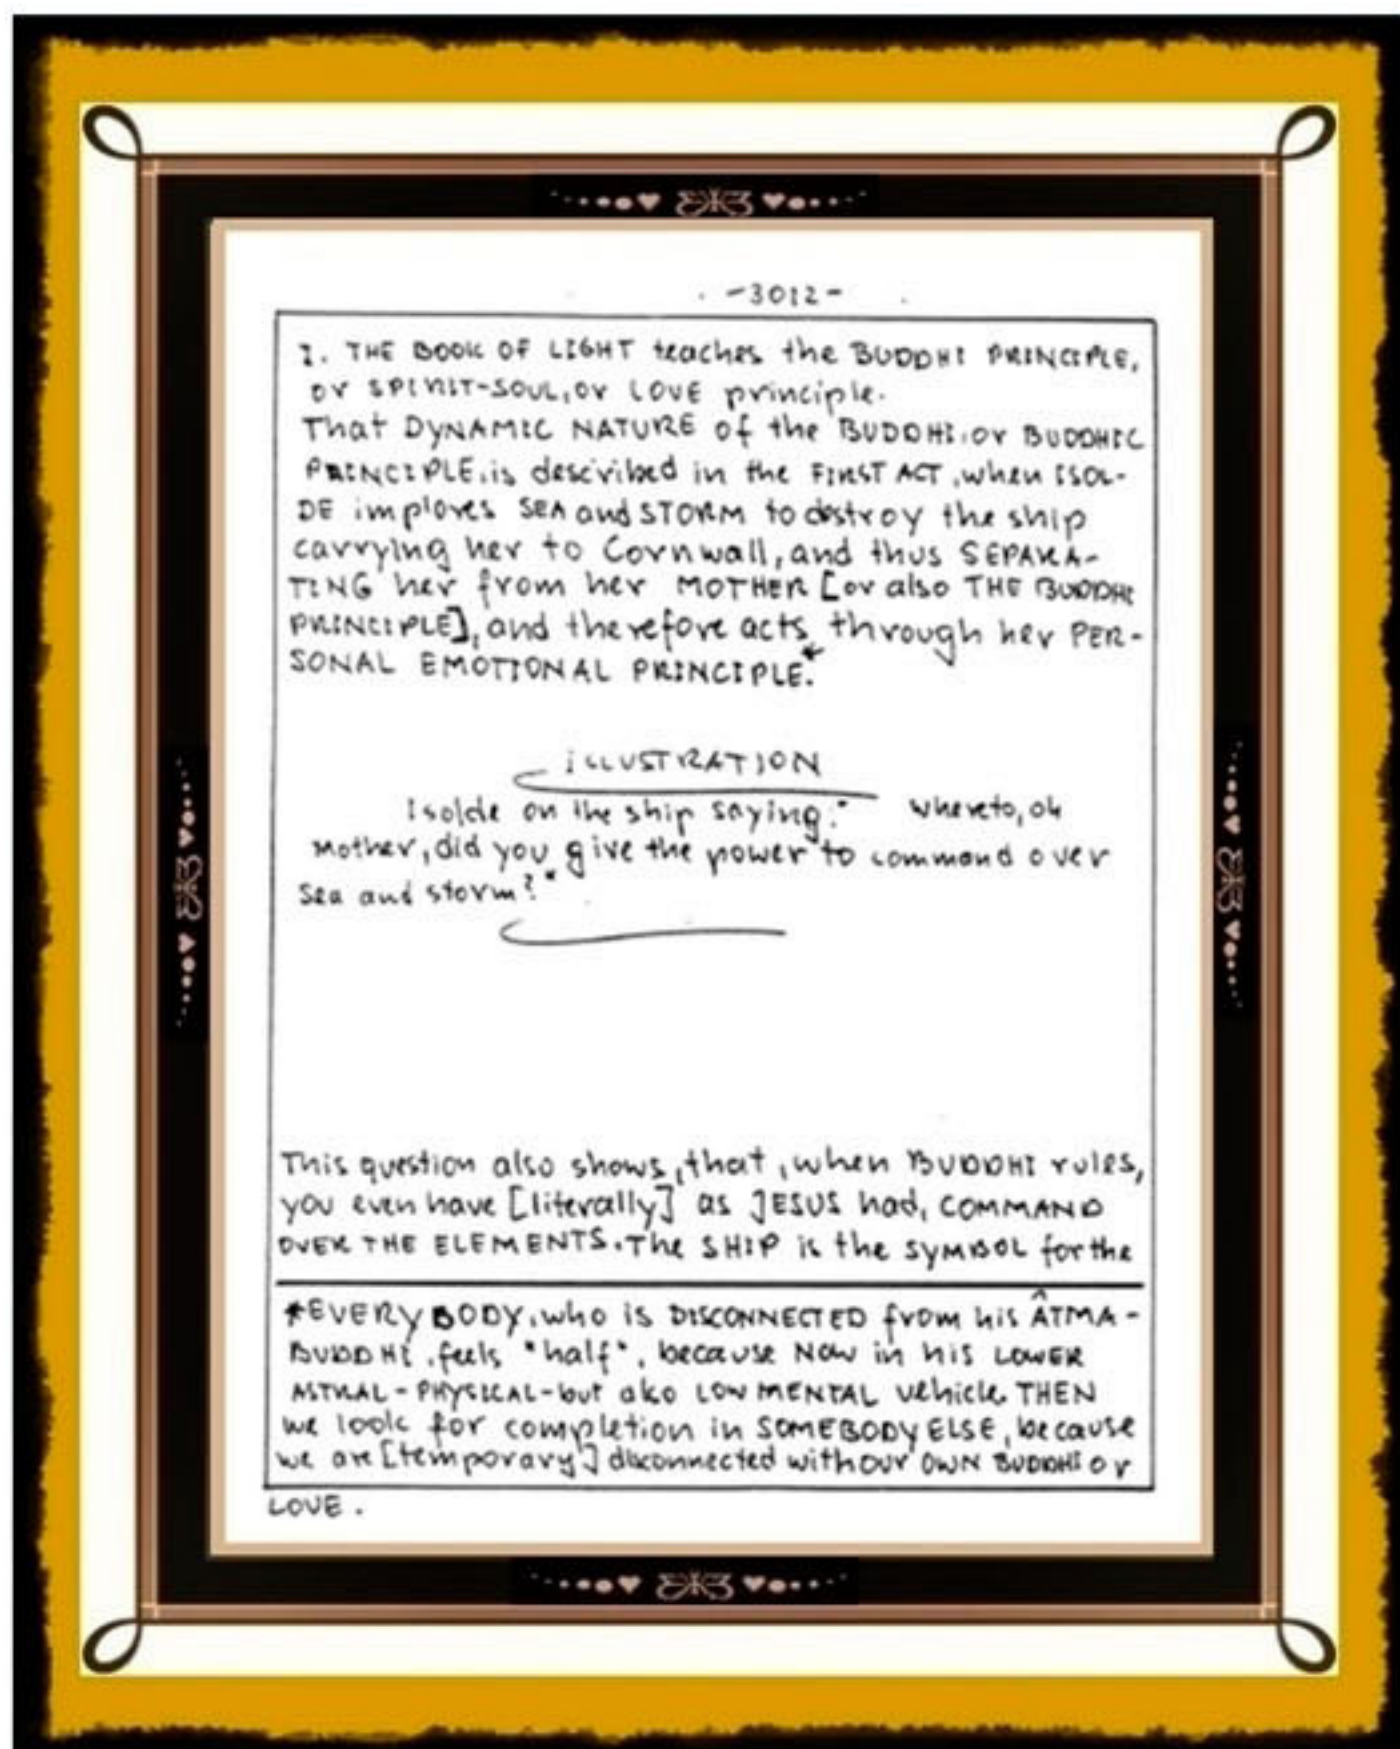 -3012-
1. THE BOOK OF LIGHT teaches the BUDDHI PRINCIPLE,
or SPIRIT-SOUL, or LOVE principle.
That DYNAMIC NATURE of the BUDDHI, or BUDDHIC
PRINCIPLE, is described in the FIRST ACT, when ISOL-
DE implores SEA and STORM to destroy the ship
carrying her to Cornwall, and thus SEPARA-
TING her from her MOTHER [or also THE BUDDHI
PRINCIPLE], and therefore acts through her PER-
SONAL EMOTIONAL PRINCIPLE.*
ILLUSTRATION
Isolde on the ship saying: " whereto, oh
Mother, did you give the power to command over
Sea and storm?"
This question also shows, that, when BUDDHI rules,
you even have [literally] as JESUS had, COMMAND
OVER THE ELEMENTS. The SHIP is the SYMBOL for the
*EVERYBODY, who is DISCONNECTED from his ÂTMA-
BUDDHI, feels "half", because NOW in his LOWER
ASTRAL-PHYSICAL-but also LOW MENTAL vehicle. THEN
we look for completion in SOMEBODY ELSE, because
we are [temporary] disconnected with our OWN BUDDHI or
LOVE.